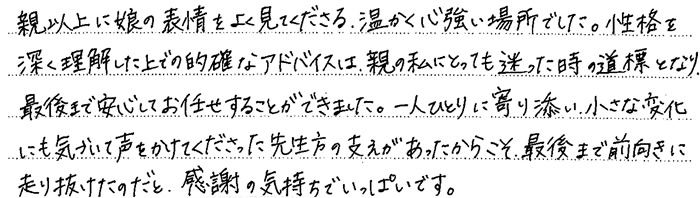 親以上に娘の表情をよく見てくださる、温かく心強い場所でした。性格を
深く理解した上での的確なアドバイスは、親の私にとっても迷った時の道標となり、
最後まで安心してお任せすることができました。一人ひとりに寄り添い、小さな変化
にも気づいて声をかけてくださった先生方の支えがあったからこそ、最後まで前向きに
走り抜けたのだと、感謝の気持ちでいっぱいです。